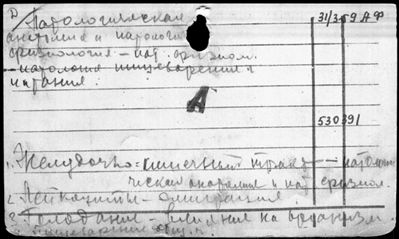 Д
Патологическая 31/3 59 АФ
анатомия и патологич
физиология – пат. физиол.
– патология пищеварения и
питания.
А
530391
1. Желудочно-кишечный тракт – патологи
ческая анатомия и пат. физиол.
2. Лейкоциты – эмиграция.
3. Голодание – влияния на организм.